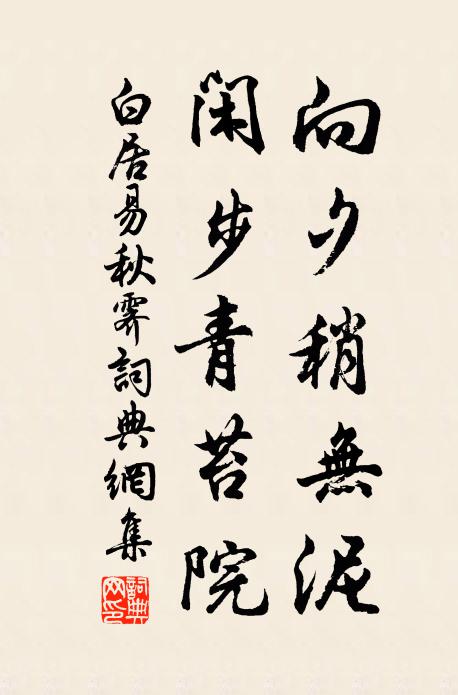 向夕稍無泥
閑步青苔院
白居易秋霽詞典網集
詞典
网印